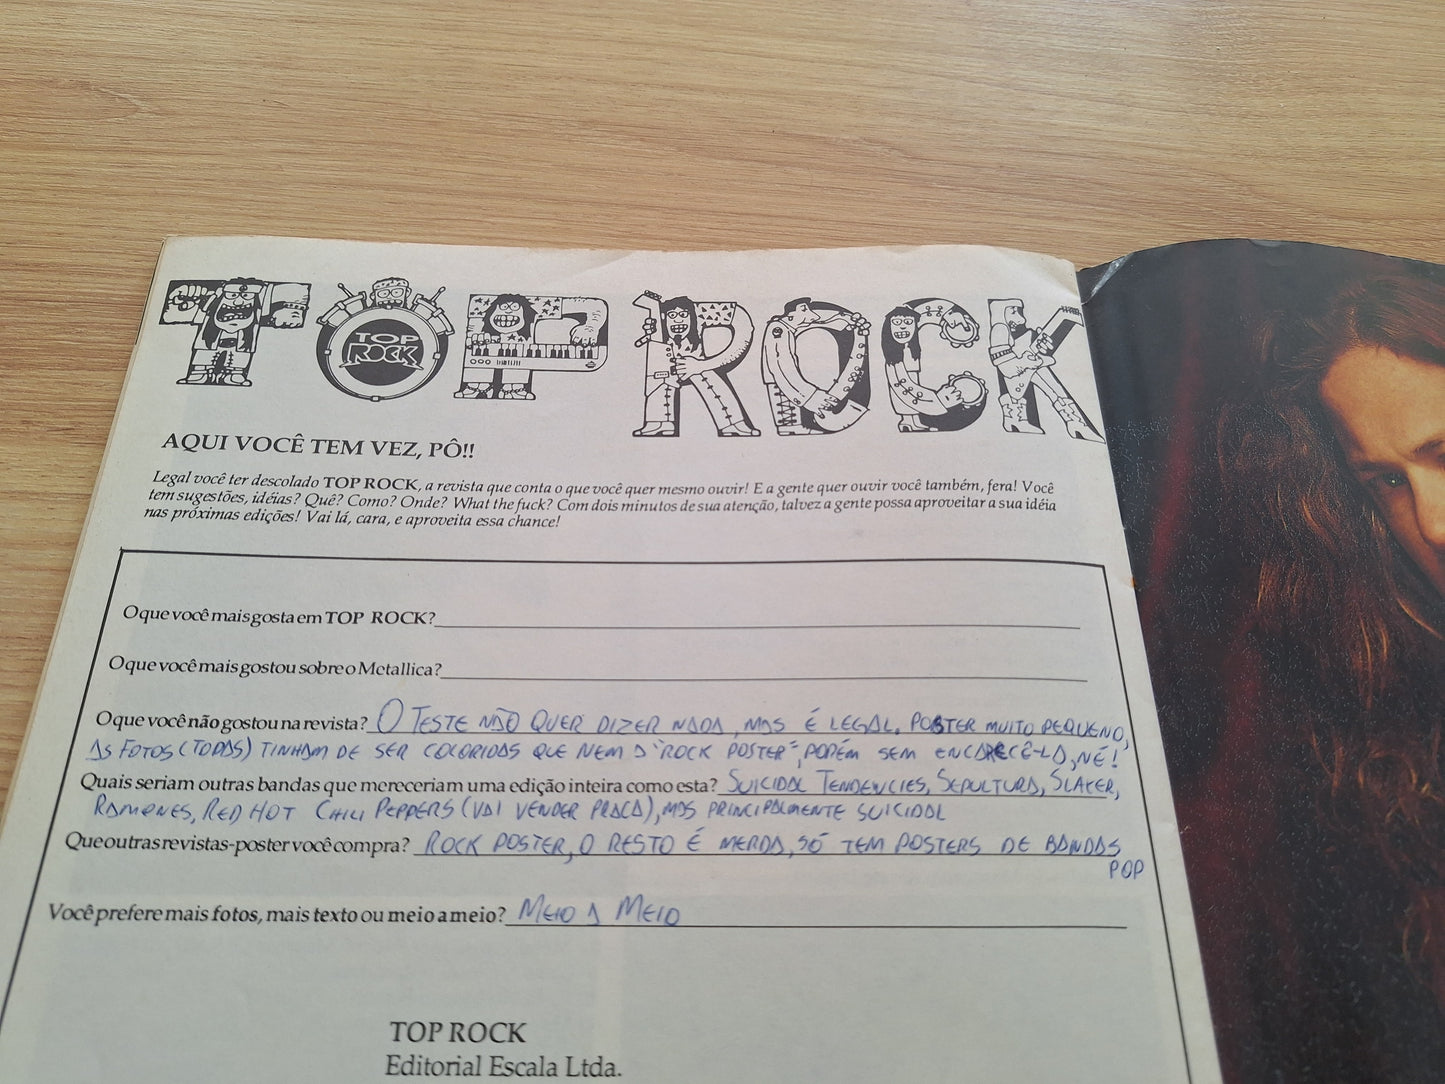 TOP ROCK
TOP
ROCK
AQUI VOCÊ TEM VEZ, PÔ!!
Legal você ter descolado TOP ROCK, a revista que conta o que você quer mesmo ouvir! E a gente quer ouvir você também, fera! Você
tem sugestões, idéias? Quê? Como? Onde? What the fuck? Com dois minutos de sua atenção, talvez a gente possa aproveitar a sua idéia
nas próximas edições! Vai lá, cara, e aproveita essa chance!
O que você mais gosta em TOP ROCK?
O que você mais gostou sobre o Metallica?
O que você não gostou na revista? O TESTE NÃO QUER DIZER NADA, MAS É LEGAL. POSTER MUITO PEQUENO,
AS FOTOS (TODAS) TINHAM DE SER COLORIDAS QUE NEM A "ROCK POSTER", PORÉM SEM ENCARECÊ-LA, NÉ!
Quais seriam outras bandas que mereceriam uma edição inteira como esta? SUICIDAL TENDENCIES, SEPULTURA, SLAYER,
RAMONES, RED HOT CHILI PEPPERS (VAI VENDER PRACA), MAS PRINCIPALMENTE SUICIDAL
Que outras revistas-poster você compra? ROCK POSTER, O RESTO É MERDA, SÓ TEM POSTERS DE BANDAS
POP
Você prefere mais fotos, mais texto ou meio a meio? MEIO A MEIO
TOP ROCK
Editorial Escala Ltda.